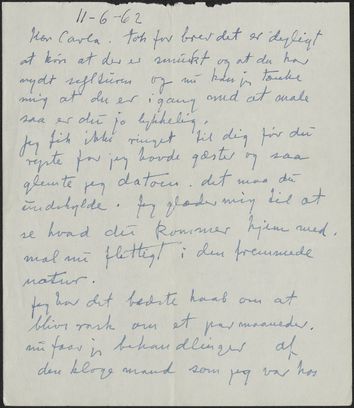 11-6-62
Kær Carla. tak for brev det er dejligt
at høre at der er smukt og at du har
nydt sejlturen og nu kan jeg tænke
mig at du er i gang med at male
saa er du jo lykkelig.
Jeg fik ikke ringet til dig før du
rejste for jeg havde gæster og saa
glemte jeg datoen. det maa du
undskylde. Jeg glæder mig til at
se hvad du kommer hjem med.
mal nu flittigt i den fremmede
natur.
Jeg har det bedste haab om at
blive rask om et par maaneder.
nu faar jeg behandlinger af
den kloge mand som jeg var hos